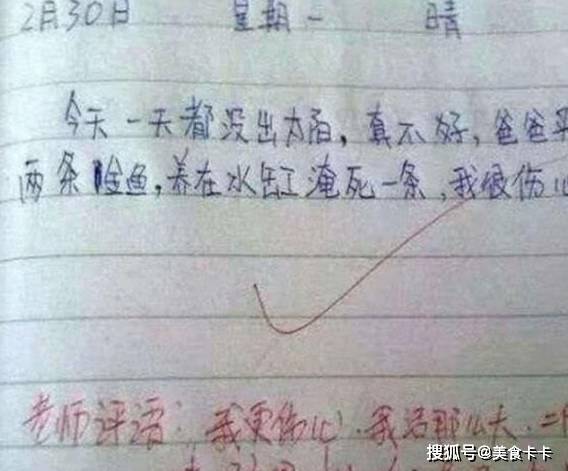 2月30日 星期一 晴
今天一天都没出太阳，真不好，爸爸买
两条金鱼，养在水缸淹死一条，我很伤心
老师评语：我更伤心，我活那么大，二
搜狐号@美食卡卡